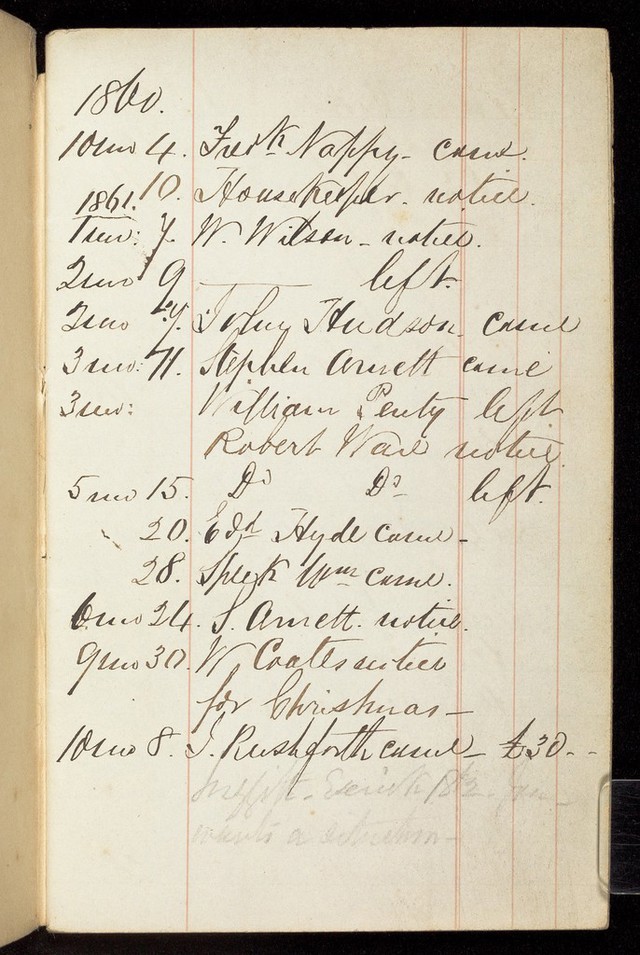 1860.
10mo 4. Fredk Nappy - came.
10. Housekeeper. notice.
1861.
1mo: 7. W. Wilson - notice.
2mo 9 ——— left.
2mo John Hudson. came
3mo: 11. Stephen Arnett came
3mo: William Penty left
Robert Ware notice.
5mo 15. Do Do left.
20. Edd Hyde came -
28. Speck Wm came.
6mo 24. S. Arnett. notice.
9mo 30. W Coates notice
for Christmas -
10mo 8. J. Rushforth came - £30 - -
wants a